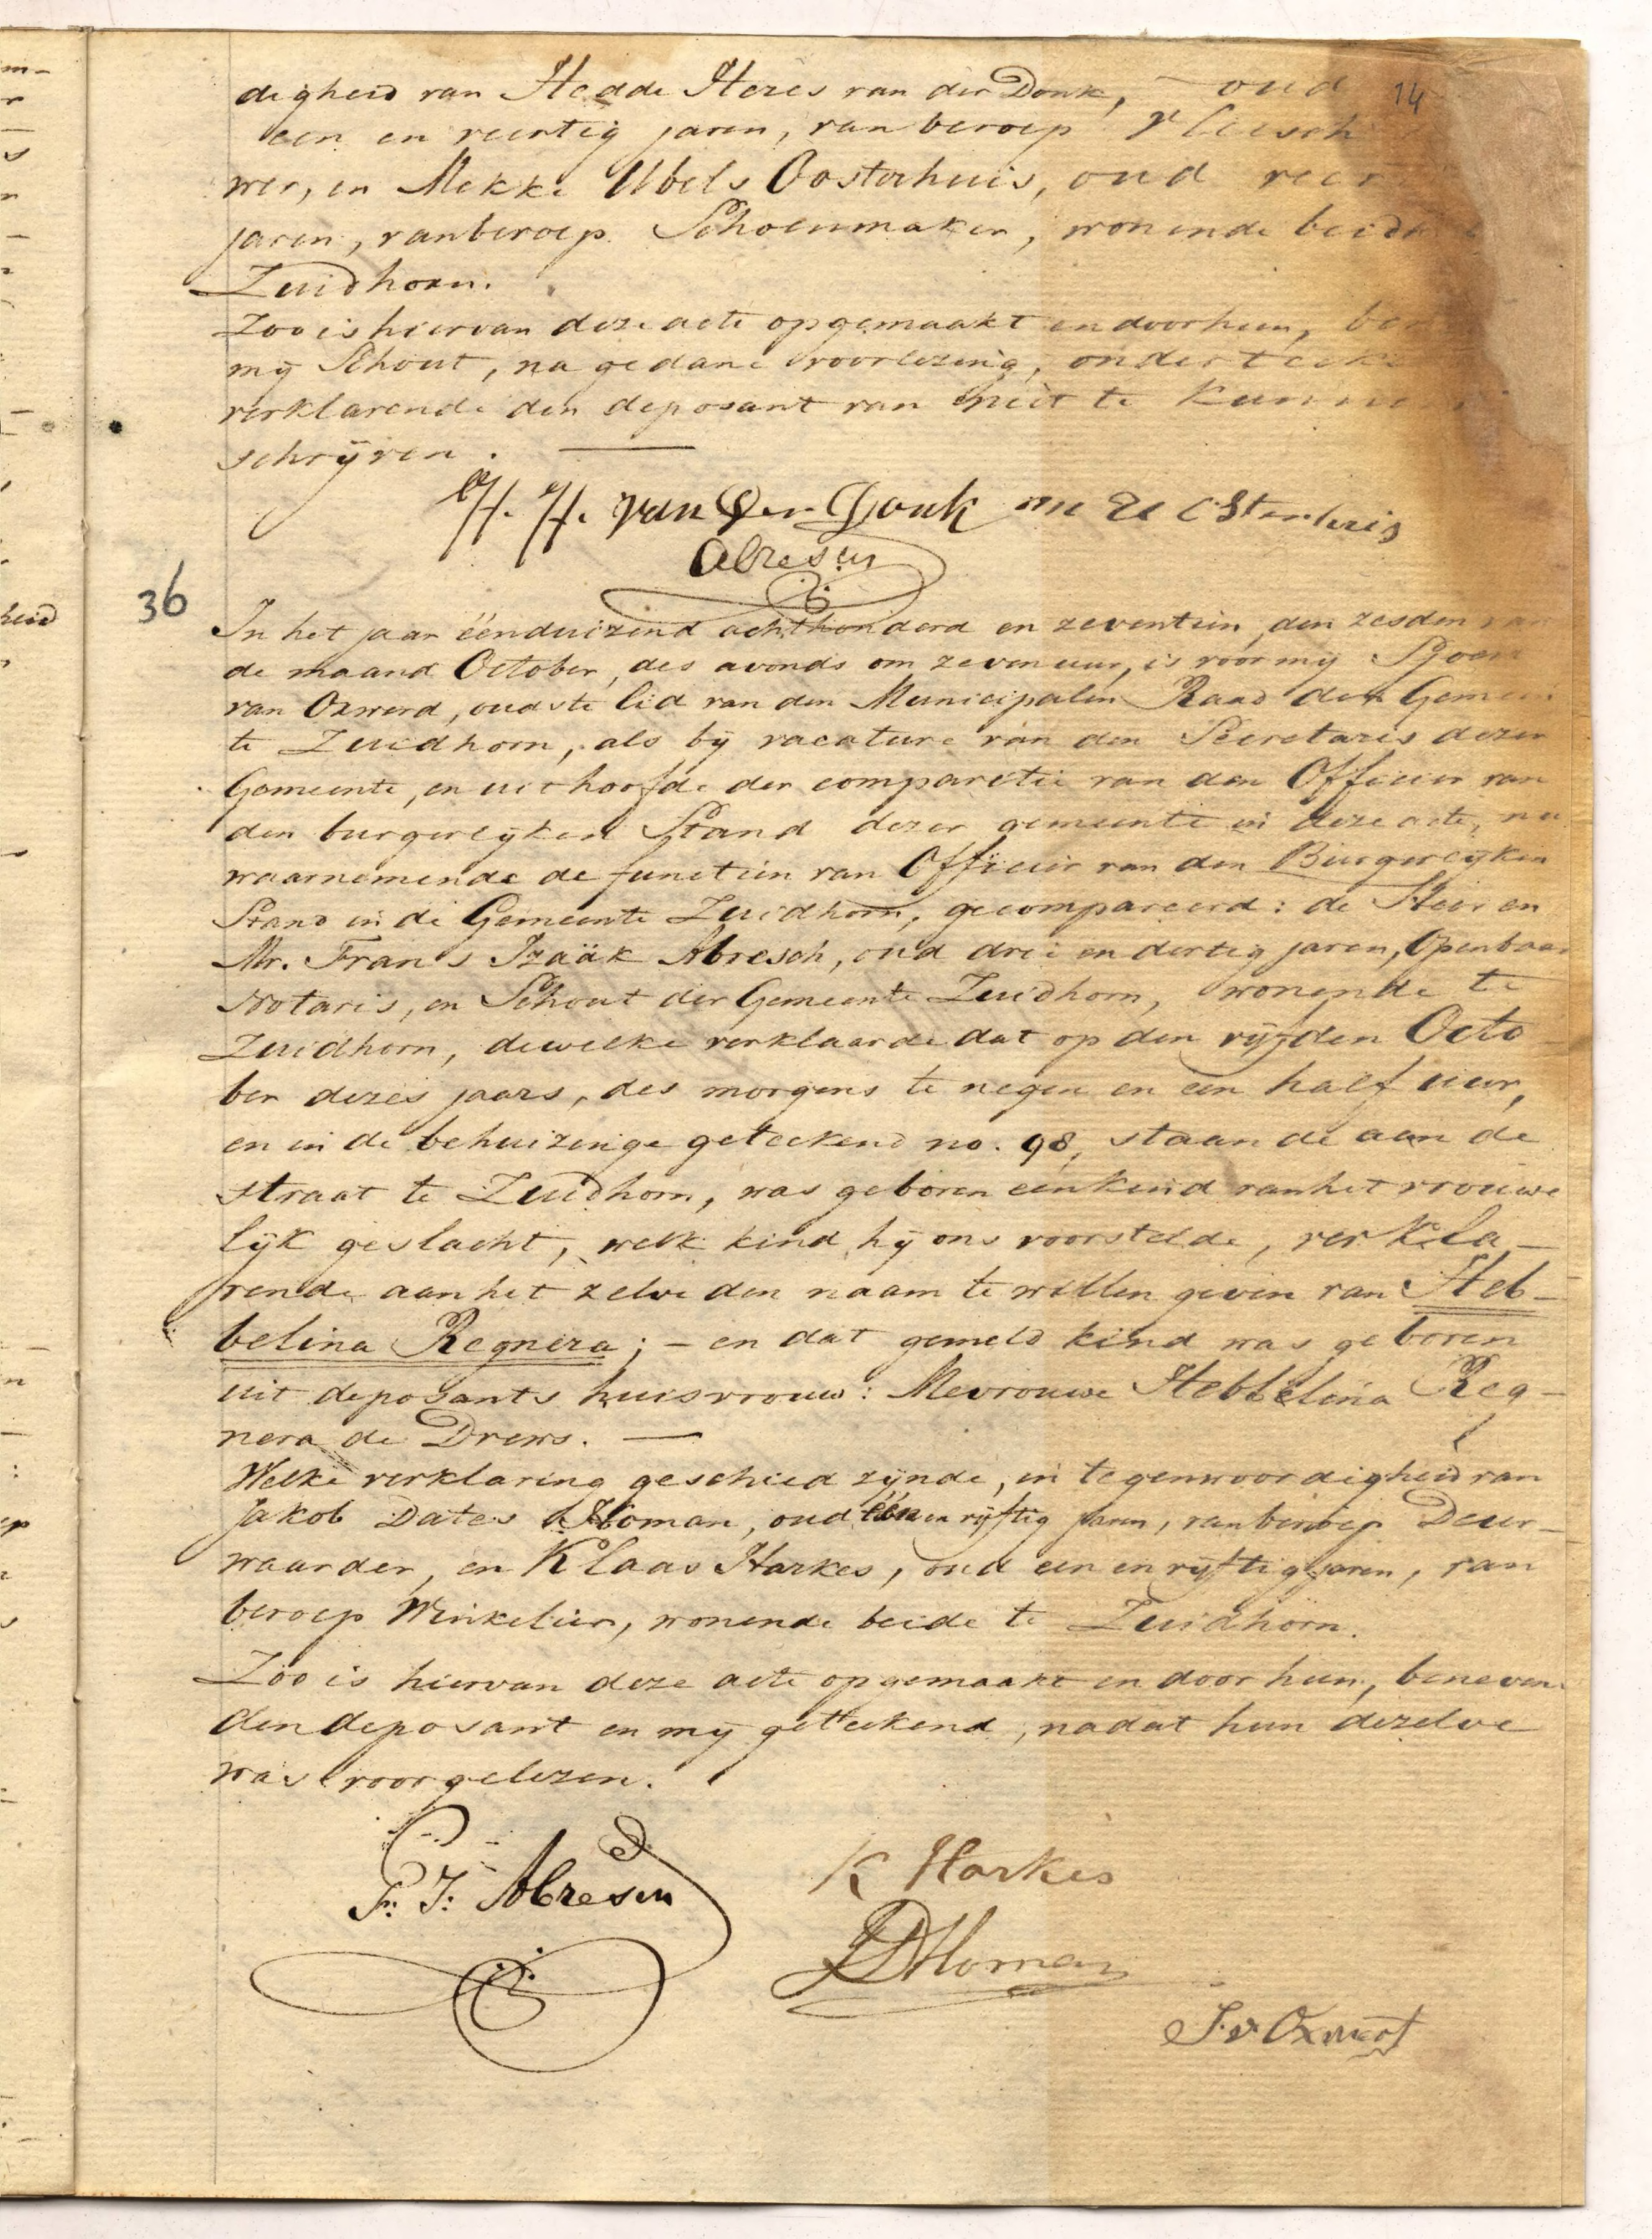 14
digheid van Hedde Hezes van der Donk, oud
een en veertig jaren, van beroep Vleesch
wer, en Mekke Ubels Oosterhuis, oud veer
jaren, van beroep Schoenmaker, wonende beide
Zuidhorn.
Zoo is hiervan deze acte opgemaakt en door hun, ben
mij Schout, na gedane voorlezing, onderteek
verklarende den deposant van niet te kunnen
schrijven.
H. H. van der Donk M U Osterhuis
Abresch
36
In het jaar éénduizend achthonderd en zeventien, den zesden van
de maand October, des avonds om zeven uur, is voor mij Sjoer
van Oxwerd, oudste lid van den Municipalen Raad der Gemeen
te Zuidhorn, als bij vacature van den Secretaris dezer
Gemeente, en uithoofde der comparitie van den Officier van
den burgerlijken Stand dezer gemeente in deze acte, nu
waarnemende de functien van Officier van den Burgerlijken
Stand in de Gemeente Zuidhorn, gecompareerd: de Heer en
Mr. Frans Izaäk Abresch, oud drie en dertig jaren, Openbaar
Notaris, en Schout der Gemeente Zuidhorn, wonende te
Zuidhorn, dewelke verklaarde dat op den vijfden Octo
ber dezes jaars, des morgens te negen en een half uur,
en in de behuizinge geteekend no. 98, staande aan de
straat te Zuidhorn, was geboren een kind van het vrouwe
lijk geslacht, welk kind hij ons voorstelde, verkla-
rende aan het zelve den naam te willen geven van Heb-
belina Regnera; - en dat gemeld kind was geboren
uit deposants huisvrouw: Mevrouwe Hebbelina Reg-
nera de Drews. —
Welke verklaring geschied zijnde, in tegenwoordigheid van
Jakob Dates Homan, oud één en vijftig jaren, van beroep Deur-
waarder, en Klaas Harkes, oud een en vijftig jaren, van
beroep Winkelier, wonende beide te Zuidhorn.
Zoo is hiervan deze acte opgemaakt en door hun, beneven
den deposant en mij geteekend, nadat hun dezelve
was voorgelezen.
F. I. Abresch
K Harkes
J D Homan
S. v Oxwerd